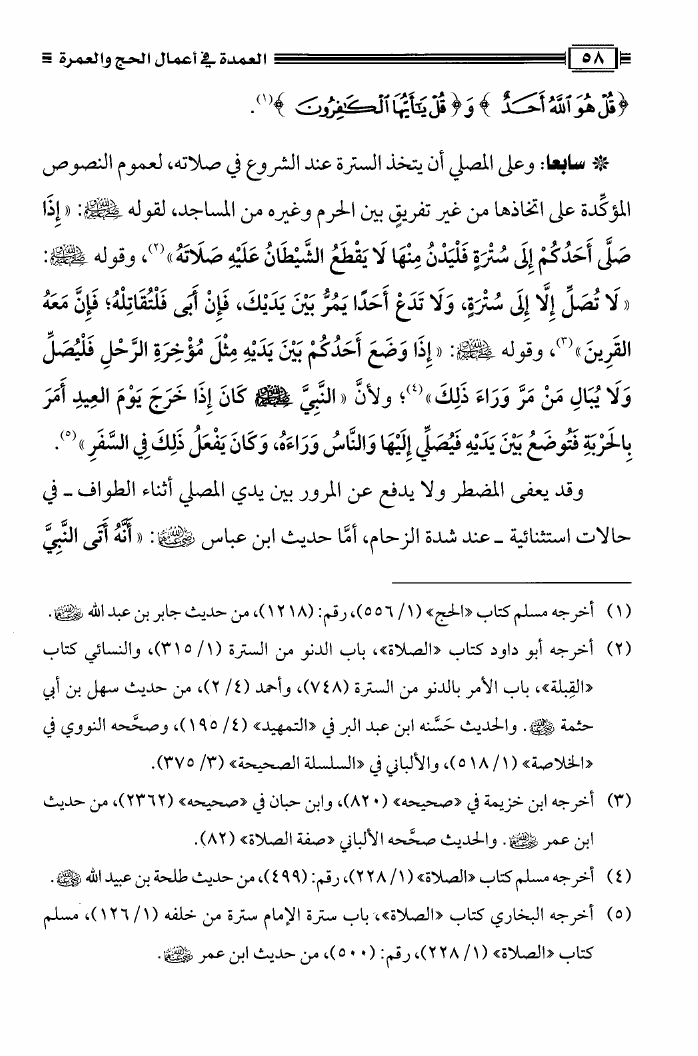 ٥٨ العمدة في أعمال الحج والعمرة
﴿قُلْ هُوَ ٱللَّهُ أَحَدٌ﴾ وَ﴿قُلْ يَٰٓأَيُّهَا ٱلْكَٰفِرُونَ﴾(١).
* سابعا: وعلى المصلي أن يتخذ السترة عند الشروع في صلاته، لعموم النصوص
المؤكِّدة على اتخاذها من غير تفريقٍ بين الحرم وغيره من المساجد، لقوله ﷺ: «إِذَا
صَلَّى أَحَدُكُمْ إِلَى سُتْرَةٍ فَلْيَدْنُ مِنْهَا لَا يَقْطَعُ الشَّيْطَانُ عَلَيْهِ صَلَاتَهُ»(٢)، وقوله ﷺ:
«لَا تُصَلِّ إِلَّا إِلَى سُتْرَةٍ، وَلَا تَدَعْ أَحَدًا يَمُرُّ بَيْنَ يَدَيْكَ، فَإِنْ أَبَى فَلْتُقَاتِلْهُ؛ فَإِنَّ مَعَهُ
القَرِينَ»(٣)، وقوله ﷺ: «إِذَا وَضَعَ أَحَدُكُمْ بَيْنَ يَدَيْهِ مِثْلَ مُؤْخِرَةِ الرَّحْلِ فَلْيُصَلِّ
وَلَا يُبَالِ مَنْ مَرَّ وَرَاءَ ذَلِكَ»(٤)؛ ولأنَّ «النَّبِيَّ ﷺ كَانَ إِذَا خَرَجَ يَوْمَ العِيدِ أَمَرَ
بِالحَرْبَةِ فَتُوضَعُ بَيْنَ يَدَيْهِ فَيُصَلِّي إِلَيْهَا وَالنَّاسُ وَرَاءَهُ، وَكَانَ يَفْعَلُ ذَلِكَ فِي السَّفَرِ»(٥).
وقد يعفى المضطر ولا يدفع عن المرور بين يدي المصلي أثناء الطواف ـ في
حالات استثنائية ـ عند شدة الزحام، أمَّا حديث ابن عباس رضي الله عنهما: «أَنَّهُ أَتَى النَّبِيَّ
(١) أخرجه مسلم كتاب «الحج» (١/ ٥٥٦)، رقم: (١٢١٨)، من حديث جابر بن عبد الله رضي الله عنهما.
(٢) أخرجه أبو داود كتاب «الصلاة»، باب الدنو من السترة (١/ ٣١٥)، والنسائي كتاب
«القِبلة»، باب الأمر بالدنو من السترة (٧٤٨)، وأحمد (٤/ ٢)، من حديث سهل بن أبي
حثمة رضي الله عنه. والحديث حَسَّنه ابن عبد البر في «التمهيد» (٤/ ١٩٥)، وصحَّحه النووي في
«الخلاصة» (١/ ٥١٨)، والألباني في «السلسلة الصحيحة» (٣/ ٣٧٥).
(٣) أخرجه ابن خزيمة في «صحيحه» (٨٢٠)، وابن حبان في «صحيحه» (٢٣٦٢)، من حديث
ابن عمر رضي الله عنهما. والحديث صحَّحه الألباني «صفة الصلاة» (٨٢).
(٤) أخرجه مسلم كتاب «الصلاة» (١/ ٢٢٨)، رقم: (٤٩٩)، من حديث طلحة بن عبيد الله رضي الله عنه.
(٥) أخرجه البخاري كتاب «الصلاة»، باب سترة الإمام سترة من خلفه (١/ ١٢٦)، مسلم
كتاب «الصلاة» (١/ ٢٢٨)، رقم: (٥٠٠)، من حديث ابن عمر رضي الله عنهما.